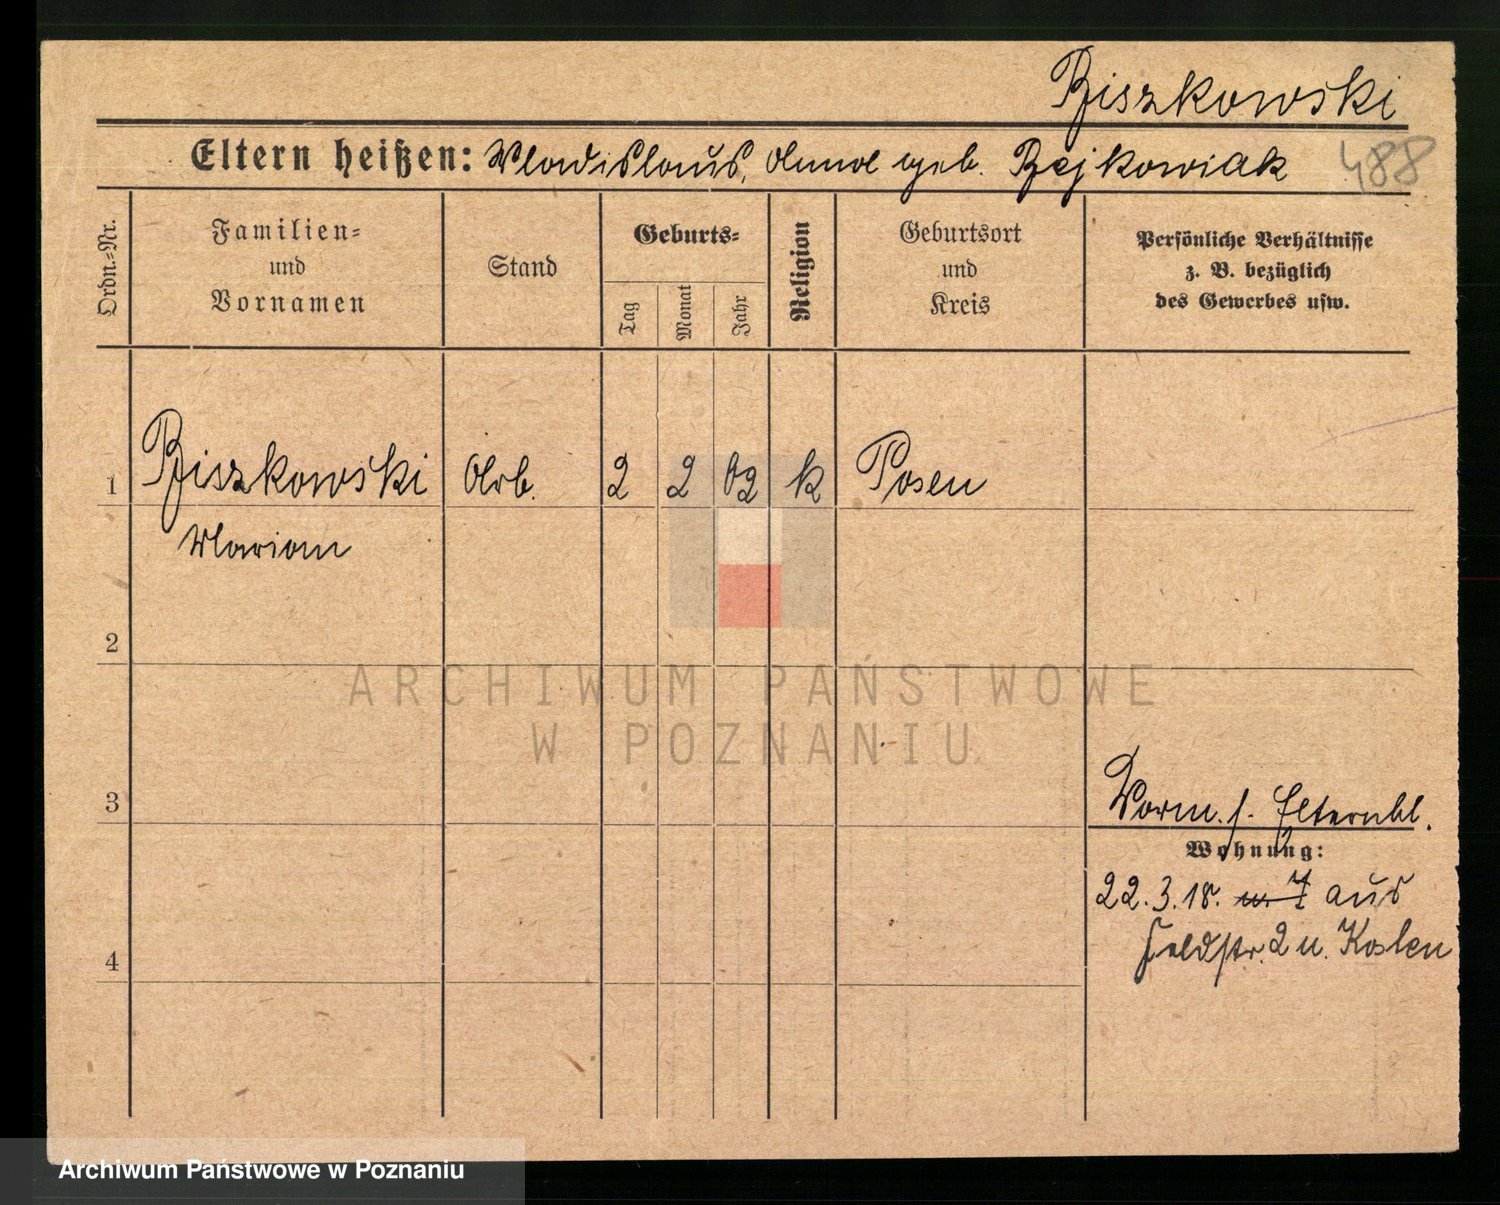 Ziszkowski
Eltern heißen: Wladislaus, Anna geb. Bejkowiak 488
Ordn.-Nr.
Familien-
und
Vornamen
Stand
Geburts-
Tag
Monat
Jahr
Religion
Geburtsort
und
Kreis
Persönliche Verhältnisse
z. B. bezüglich
des Gewerbes usw.
1 Ziszkowski Arb. 2 2 02 k Posen
Marian
2
3
Vorm. s. Elternbl.
Wohnung:
22.3.18. aus
Feldstr. 2 n. Kosten
4
ARCHIWUM PAŃSTWOWE
W POZNANIU
Archiwum Państwowe w Poznaniu